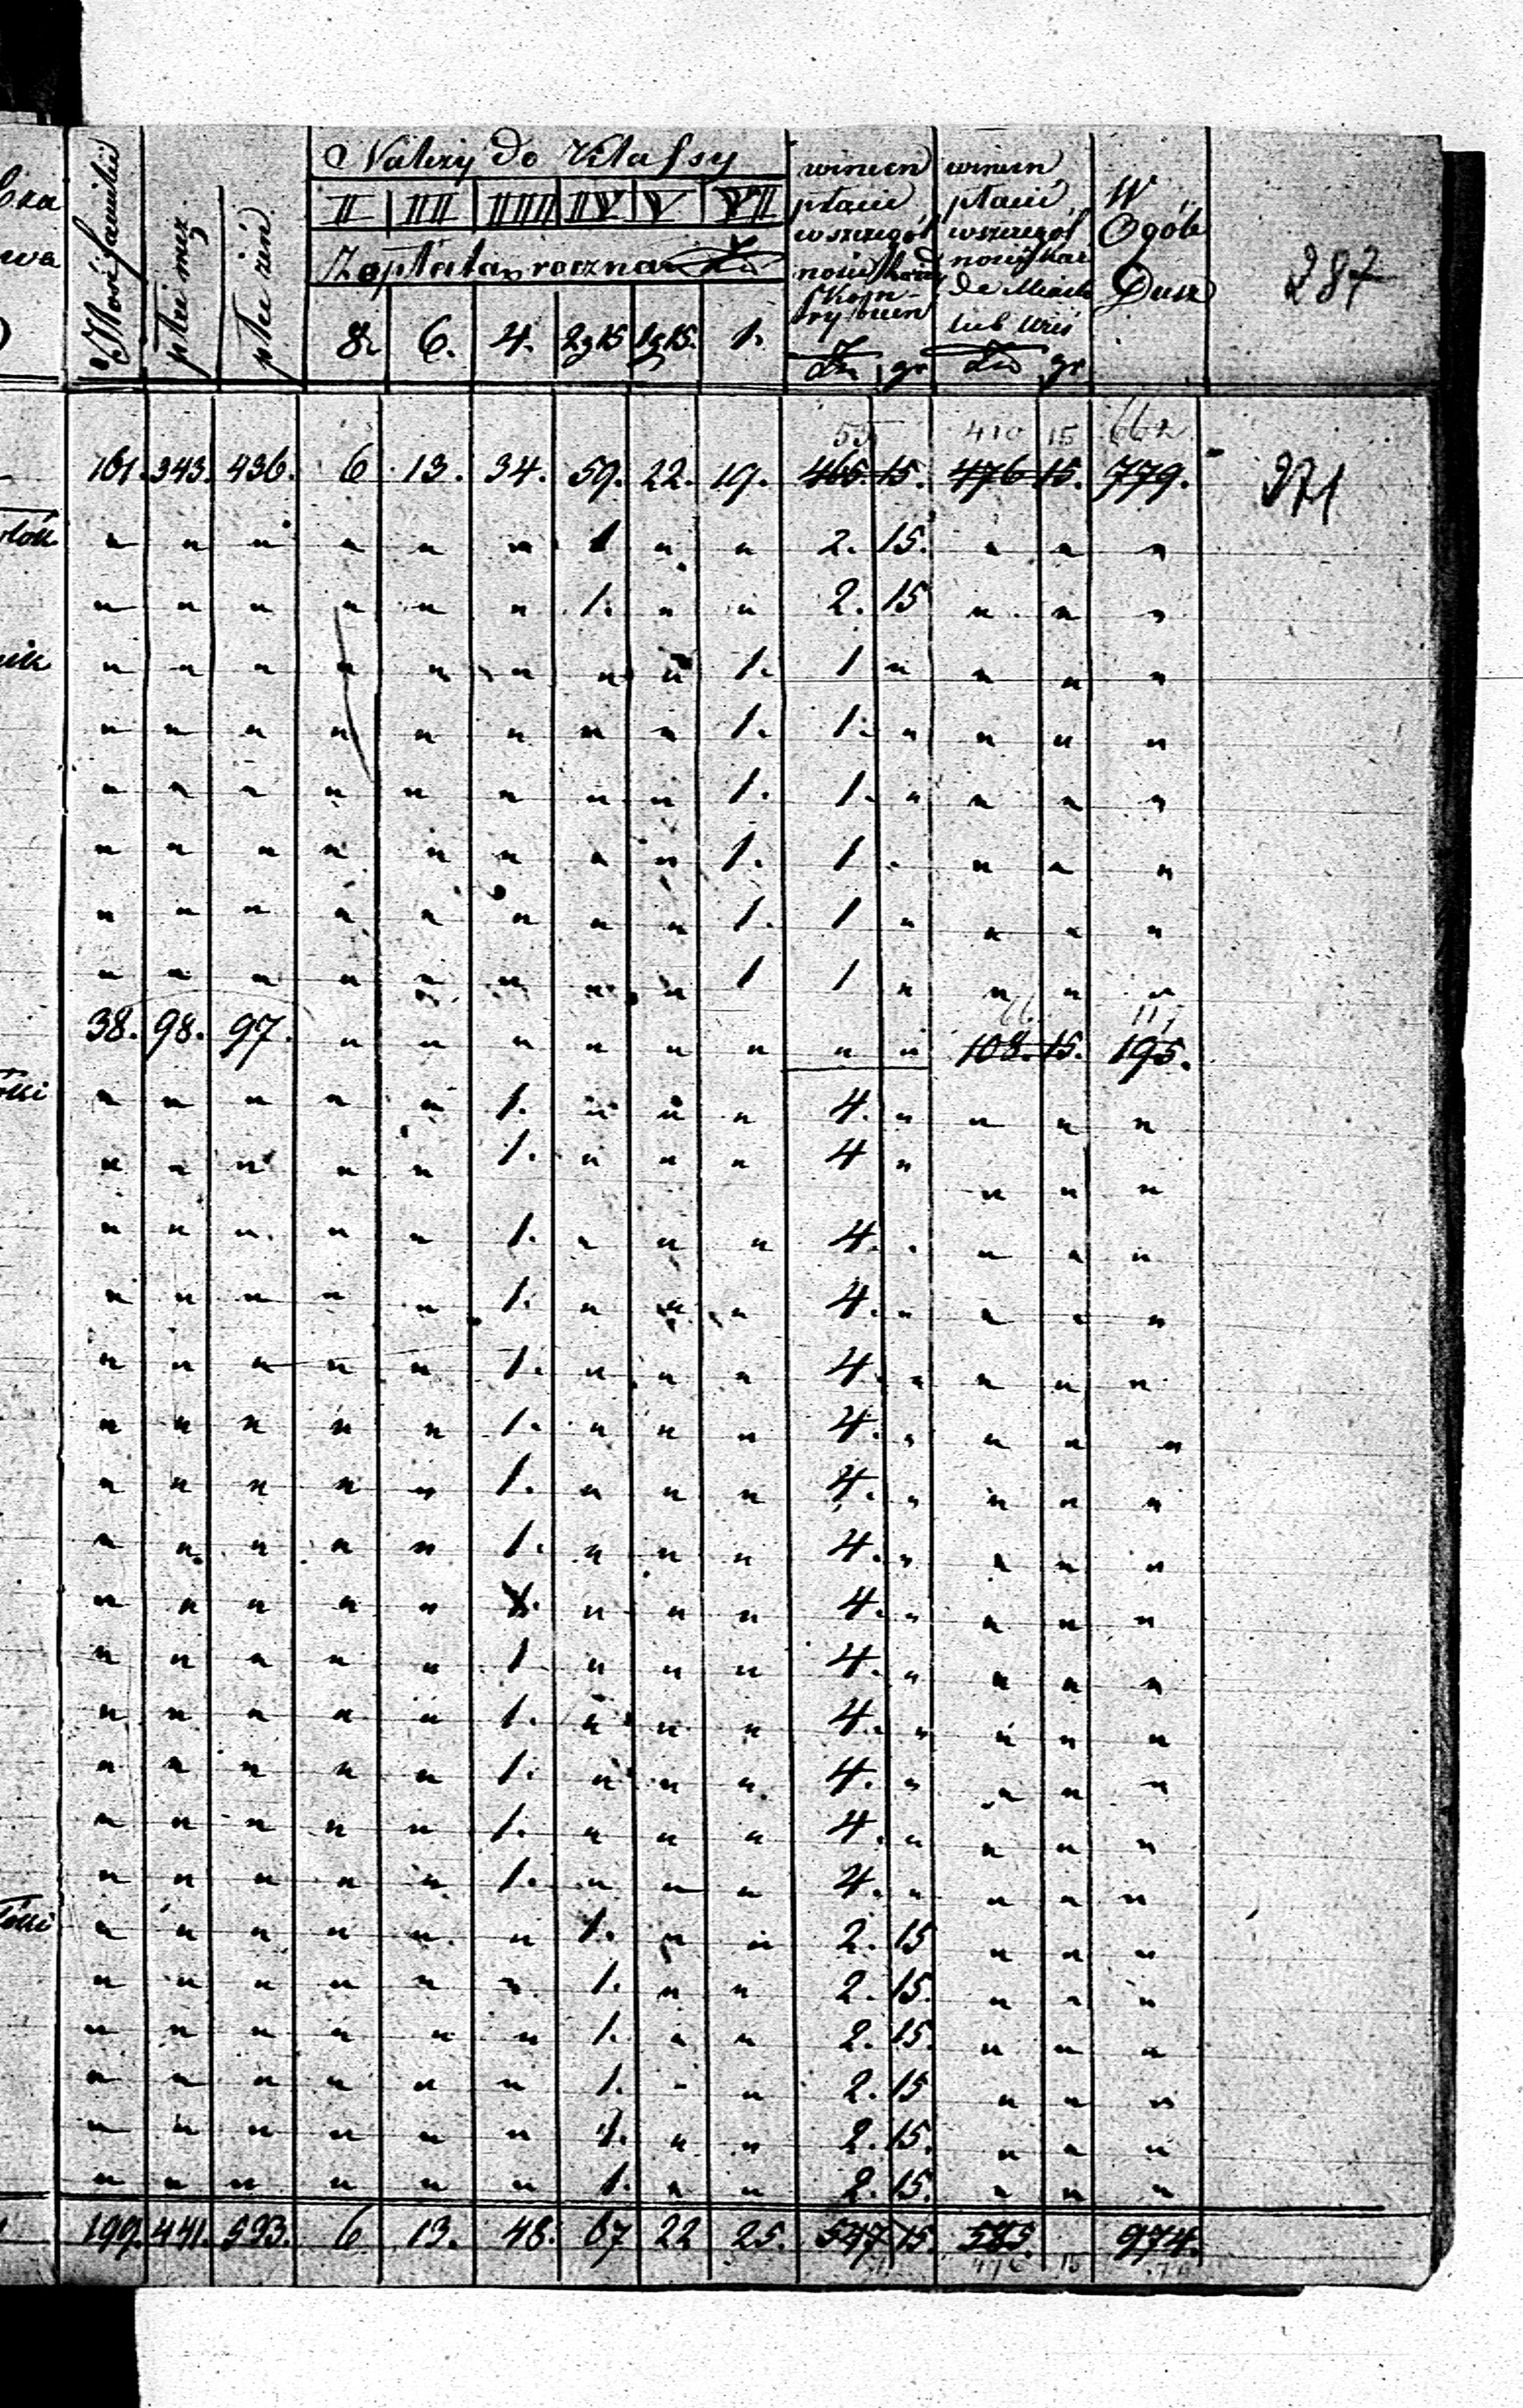 Ilość familii
płci męz.
płci żeń.
Należy do Klassy
II III IIII IV V VII
Zapłata roczna
8. 6. 4. 2g15 1g15. 1.
winien płacić wszczegól
winien płacić wszczegól
do Miasta lub Wsi
Zł gr Zł gr
W Ogóle Dusz
287
410 15 662
161. 343. 436. 6 13. 34. 59. 22. 19. 465. 15. 476 15. 779. 271
" " " " " " 1 " " 2. 15. " " "
" " " " " " 1. " " 2. 15 " " "
" " " " " " " " 1. 1 " " " "
" " " " " " " " 1. 1. " " " "
" " " " " " " " 1. 1. " " " "
" " " " " " " " 1. 1 " " " "
" " " " " " " " 1. 1 " " " "
" " " " " " " " 1 1 " " " "
66. 117
38. 98. 97. " " " " " " " " 108. 15. 195.
" " " " " 1. " " " 4. " " " "
" " " " " 1. " " " 4 " " " "
" " " " " 1. " " " 4. " " " "
" " " " " 1. " " " 4. " " " "
" " " " " 1. " " " 4. " " " "
" " " " " 1. " " " 4. " " " "
" " " " " 1. " " " 4. " " " "
" " " " " 1. " " " 4. " " " "
" " " " " 1. " " " 4. " " " "
" " " " " 1 " " " 4. " " " "
" " " " " 1. " " " 4. " " " "
" " " " " 1. " " " 4. " " " "
" " " " " 1. " " " 4. " " " "
" " " " " 1. " " " 4. " " " "
" " " " " " 1. " " 2. 15 " " "
" " " " " " 1. " " 2. 15. " " "
" " " " " " 1. " " 2. 15. " " "
" " " " " " 1. " " 2. 15 " " "
" " " " " " 1. " " 2. 15. " " "
" " " " " " 1. " " 2. 15. " " "
199. 441. 533. 6 13. 48. 67 22 25. 547 15. 585. 974.
476 15